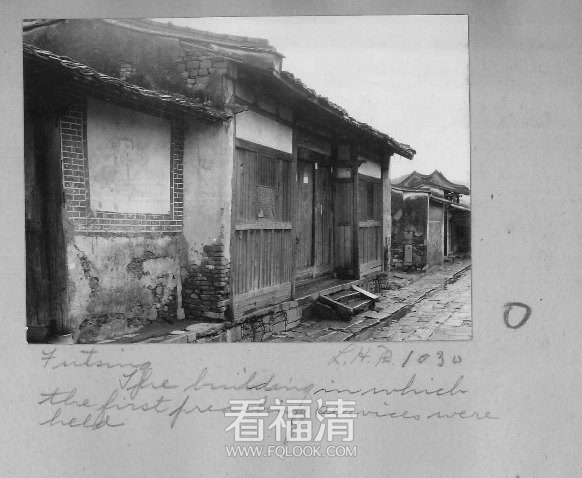 Futsing L.H.B. 1030
The building in which
the first services were
held
看福清
WWW.FQLOOK.COM